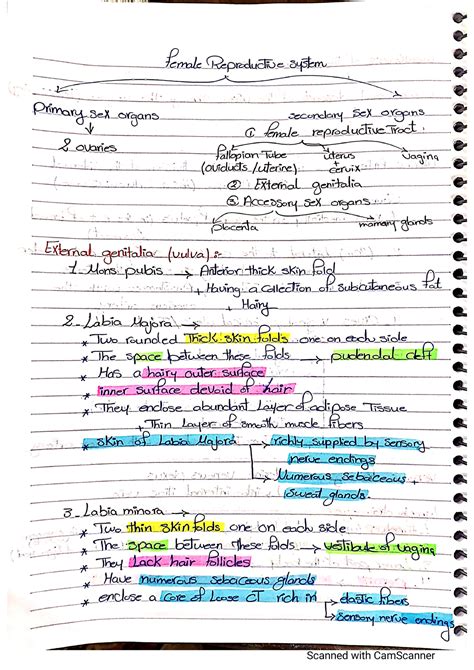 Female Reproductive system
Primary sex organs
secondary sex organs
2 ovaries
① female reproductive Tract.
Fallopian Tube
uterus
vagina
(oviducts /uterine)
+ cervix
② External genitalia
③ Accessory sex organs
placenta
mamary glands
External genitalia (vulva):-
1- Mons pubis → Anterior thick skin fold
+ Having a collection of subcutaneous fat
+ Hairy
2- Labia Majora →
* Two rounded thick skin folds one on each side
* The space between these folds → pudendal cleft
* Has a hairy outer surface
* inner surface devoid of hair
* They enclose abundant Layer of adipose Tissue
+ Thin Layer of smooth muscle fibers
* skin of Labia Majora → richly supplied by sensory
nerve endings
→ Numerous sebaceous +
sweat glands.
3- Labia minora →
* Two thin skin folds one on each side
* The space between these folds → vestibule of vagina
* They Lack hair follicles
* Have numerous sebaceous glands
* enclose a core of Loose CT rich in → elastic fibers
→ sensory nerve endings
Scanned with CamScanner